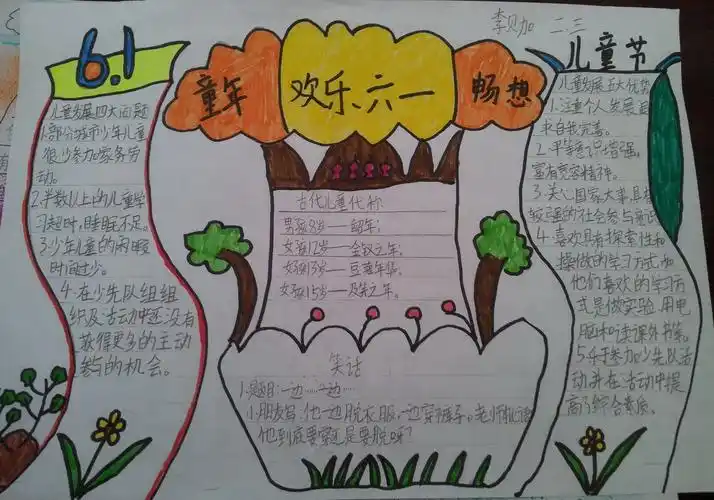 李贝加 二.三
6.1
童年
欢乐六一
畅想
儿童节
儿童发展四大问题
1部分城市少年儿童
很少参加家务劳
动。
2.半数以上的儿童学
习超时,睡眠不足。
3.少年儿童的闲暇
时间过少。
4.在少先队组组
织及活动中还没有
获得更多的主动
参与的机会。
古代儿童代称
男孩8岁——龆年;
女孩12岁——金钗之年;
女孩13岁——豆蔻年华;
女孩15岁——及笄之年。
笑话
1.题目:一边……一边……
小朋友写:他一边脱衣服,一边穿裤子。老师批语:
他到底要穿还是要脱呀?
儿童发展五大优势
1.注重个人发展追
求自我完善。
2.平等意识增强,
富有宽容精神。
3.关心国家大事,具有
较强的社会参与意识
4.喜欢具有探索性和
操做的学习方式和
他们喜欢的学习方
式是做实验用电
脑和读课外书等。
5.乐于参加少先队活
动并在活动中提
高了综合素质。